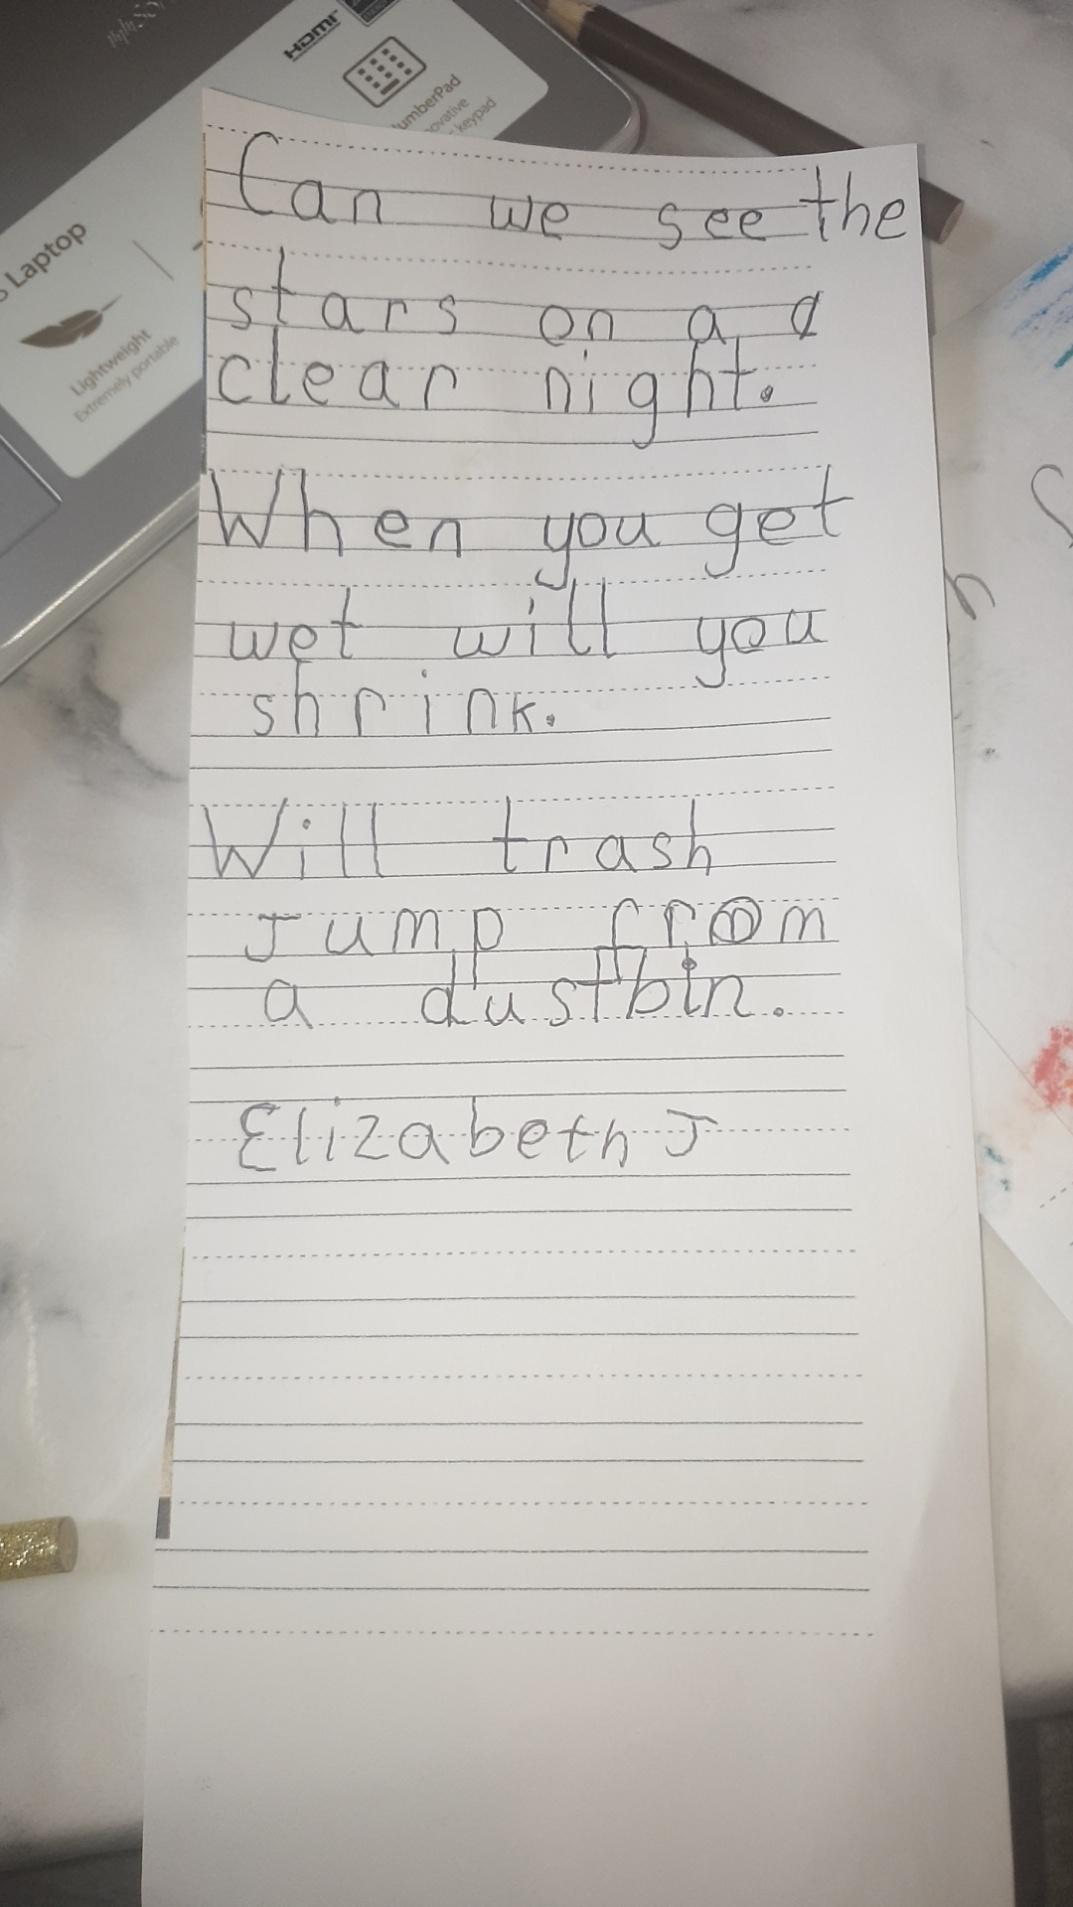 HDMI
NumberPad
keypad
Laptop
Lightweight
Extremely portable
Can we see the
stars on a
clear night.
When you get
wet will you
shrink.
Will trash
Jump from
a dustbin.
Elizabeth J